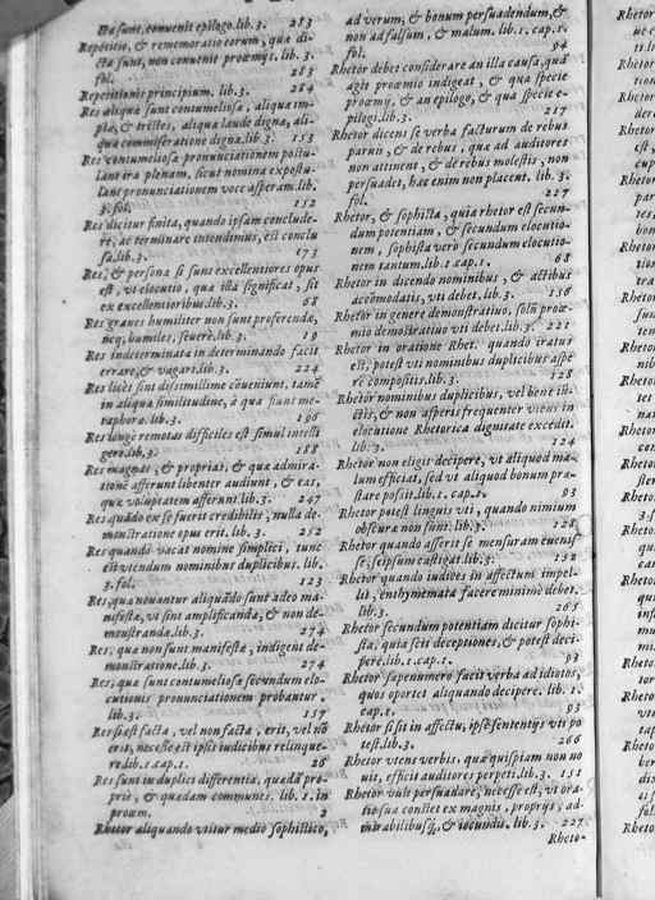 sunt, conuenit epilogo.lib.3. 283
Repetitio, & rememoratio eorum, quæ di-
cta sunt, non conuenit proœmijs. lib. 3.
fol. 283
Repetitionis principium. lib.3. 284
Res aliquæ sunt contumeliosæ, aliquæ im-
piæ, & tristes, aliqua laude dignæ, ali-
quæ commiseratione dignæ.lib.3. 153
Res contumeliosæ pronunciationem postu-
lant ira plenam, sicut nomina expostu-
lant pronunciationem voce asperam.lib.
3. fol. 152
Res dicitur finita, quando ipsam conclude-
re, ac terminare intendimus, est conclu
sa.lib.3. 173
Res, & persona si sunt excellentiores opus
est, vt elocutio, quæ illa significat, sit
ex excellentioribus.lib.3. 68
Res graues humiliter non sunt proferendæ,
neq; humiles, seuerè.lib.3. 19
Res indeterminata in determinando facit
errare, & vagari.lib.3. 224
Res licèt sint dissimillime cõueniunt, tamẽ
in aliqua similitudine, à qua fiunt me-
taphoræ.lib.3. 196
Res longè remotas difficiles est simul intelli
gere.lib.3. 188
Res magnas, & proprias, & quæ admira-
tionẽ afferunt libenter audiunt, & eas,
quæ voluptatem afferunt lib.3. 247
Res quãdo ex se fuerit credibilis, nulla de-
monstratione opus erit. lib.3. 252
Res quando vacat nomine simplici, tunc
est vtendum nominibus duplicibus. lib.
3. fol. 123
Res, quæ nouantur aliquãdo sunt adeo ma-
nifestæ, vt sint amplificandæ, & non de-
monstrandæ.lib.3. 274
Res, quæ non sunt manifestæ, indigent de-
monstratione.lib.3. 274
Res, quæ sunt contumeliosæ secundum elo-
cutionis pronunciationem probantur.
lib.3. 157
Res si est facta, vel non facta, erit, vel nõ
erit, necesse est ipsis iudicibus relinque-
re.lib.1.cap.1. 26
Res sunt in duplici differentia, quædã pro-
priæ, & quædam communes. lib. 1. in
proœm. 2
Rhetor aliquando vtitur medio sophistico,
ad verum, & bonum persuadendum, &
non ad falsum, & malum. lib.1. cap.1.
fol. 94
Rhetor debet considerare an illa causa, quã
agit proœmio indigeat, & qua specie
proœmij, & an epilogo, & qua specie e-
pilogi.lib.3. 217
Rhetor dicens se verba facturum de rebus
paruis, & de rebus, quæ ad auditores
non attinent, & de rebus molestis, non
persuadet, hæc enim non placent. lib. 3.
fol. 227
Rhetor, & sophista, quia rhetor est secun-
dum potentiam, & secundum elocutio-
nem, sophista verò secundum elocutio-
nem tantum.lib.1.cap.1. 68
Rhetor in dicendo nominibus, & actibus
accõmodatis, vti debet, lib.3. 156
Rhetor in genere demonstratiuo, solũ proœ-
mio demõstratiuo vti debet.lib.3. 221
Rhetor in oratione Rhet. quando iratus
est, potest vti nominibus duplicibus aspe
rè compositis.lib.3. 128
Rhetor nominibus duplicibus, vel bene iũ-
ctis, & non asperis frequenter vtens in
elocutione Rhetorica dignitate excedit.
lib.3. 124
Rhetor non eligit decipere, vt aliquod ma-
lum efficiat, sed vt aliquod bonum præ-
stare possit.lib.1. cap.1. 93
Rhetor potest linguis vti, quando nimium
obscuræ non sunt.lib.3. 128
Rhetor quando asserit se mensuram
se, seipsum castigat.lib.3. 132
Rhetor quando iudices in affectum impel-
lit, enthymemata facere minimè debet.
lib.3. 265
Rhetor secundum potentiam dicitur sophi-
sta, quia scit deceptiones, & potest deci-
pere.lib.1.cap.1. 93
Rhetor sæpenumero facit verba ad idiotas,
quos oportet aliquando decipere. lib. 1.
cap.1. 93
Rhetor si sit in affectu, ipse sententijs vti po
test.lib.3. 266
Rhetor vtens verbis, quæ quispiam non no
uit, efficit auditores perpeti.lib.3. 151
Rhetor vult persuadere, necesse est, vt ora-
tio sua constet ex magnis, proprijs, ad-
mirabilibusq́;, & iocundis. lib.3. 227
Rheto-